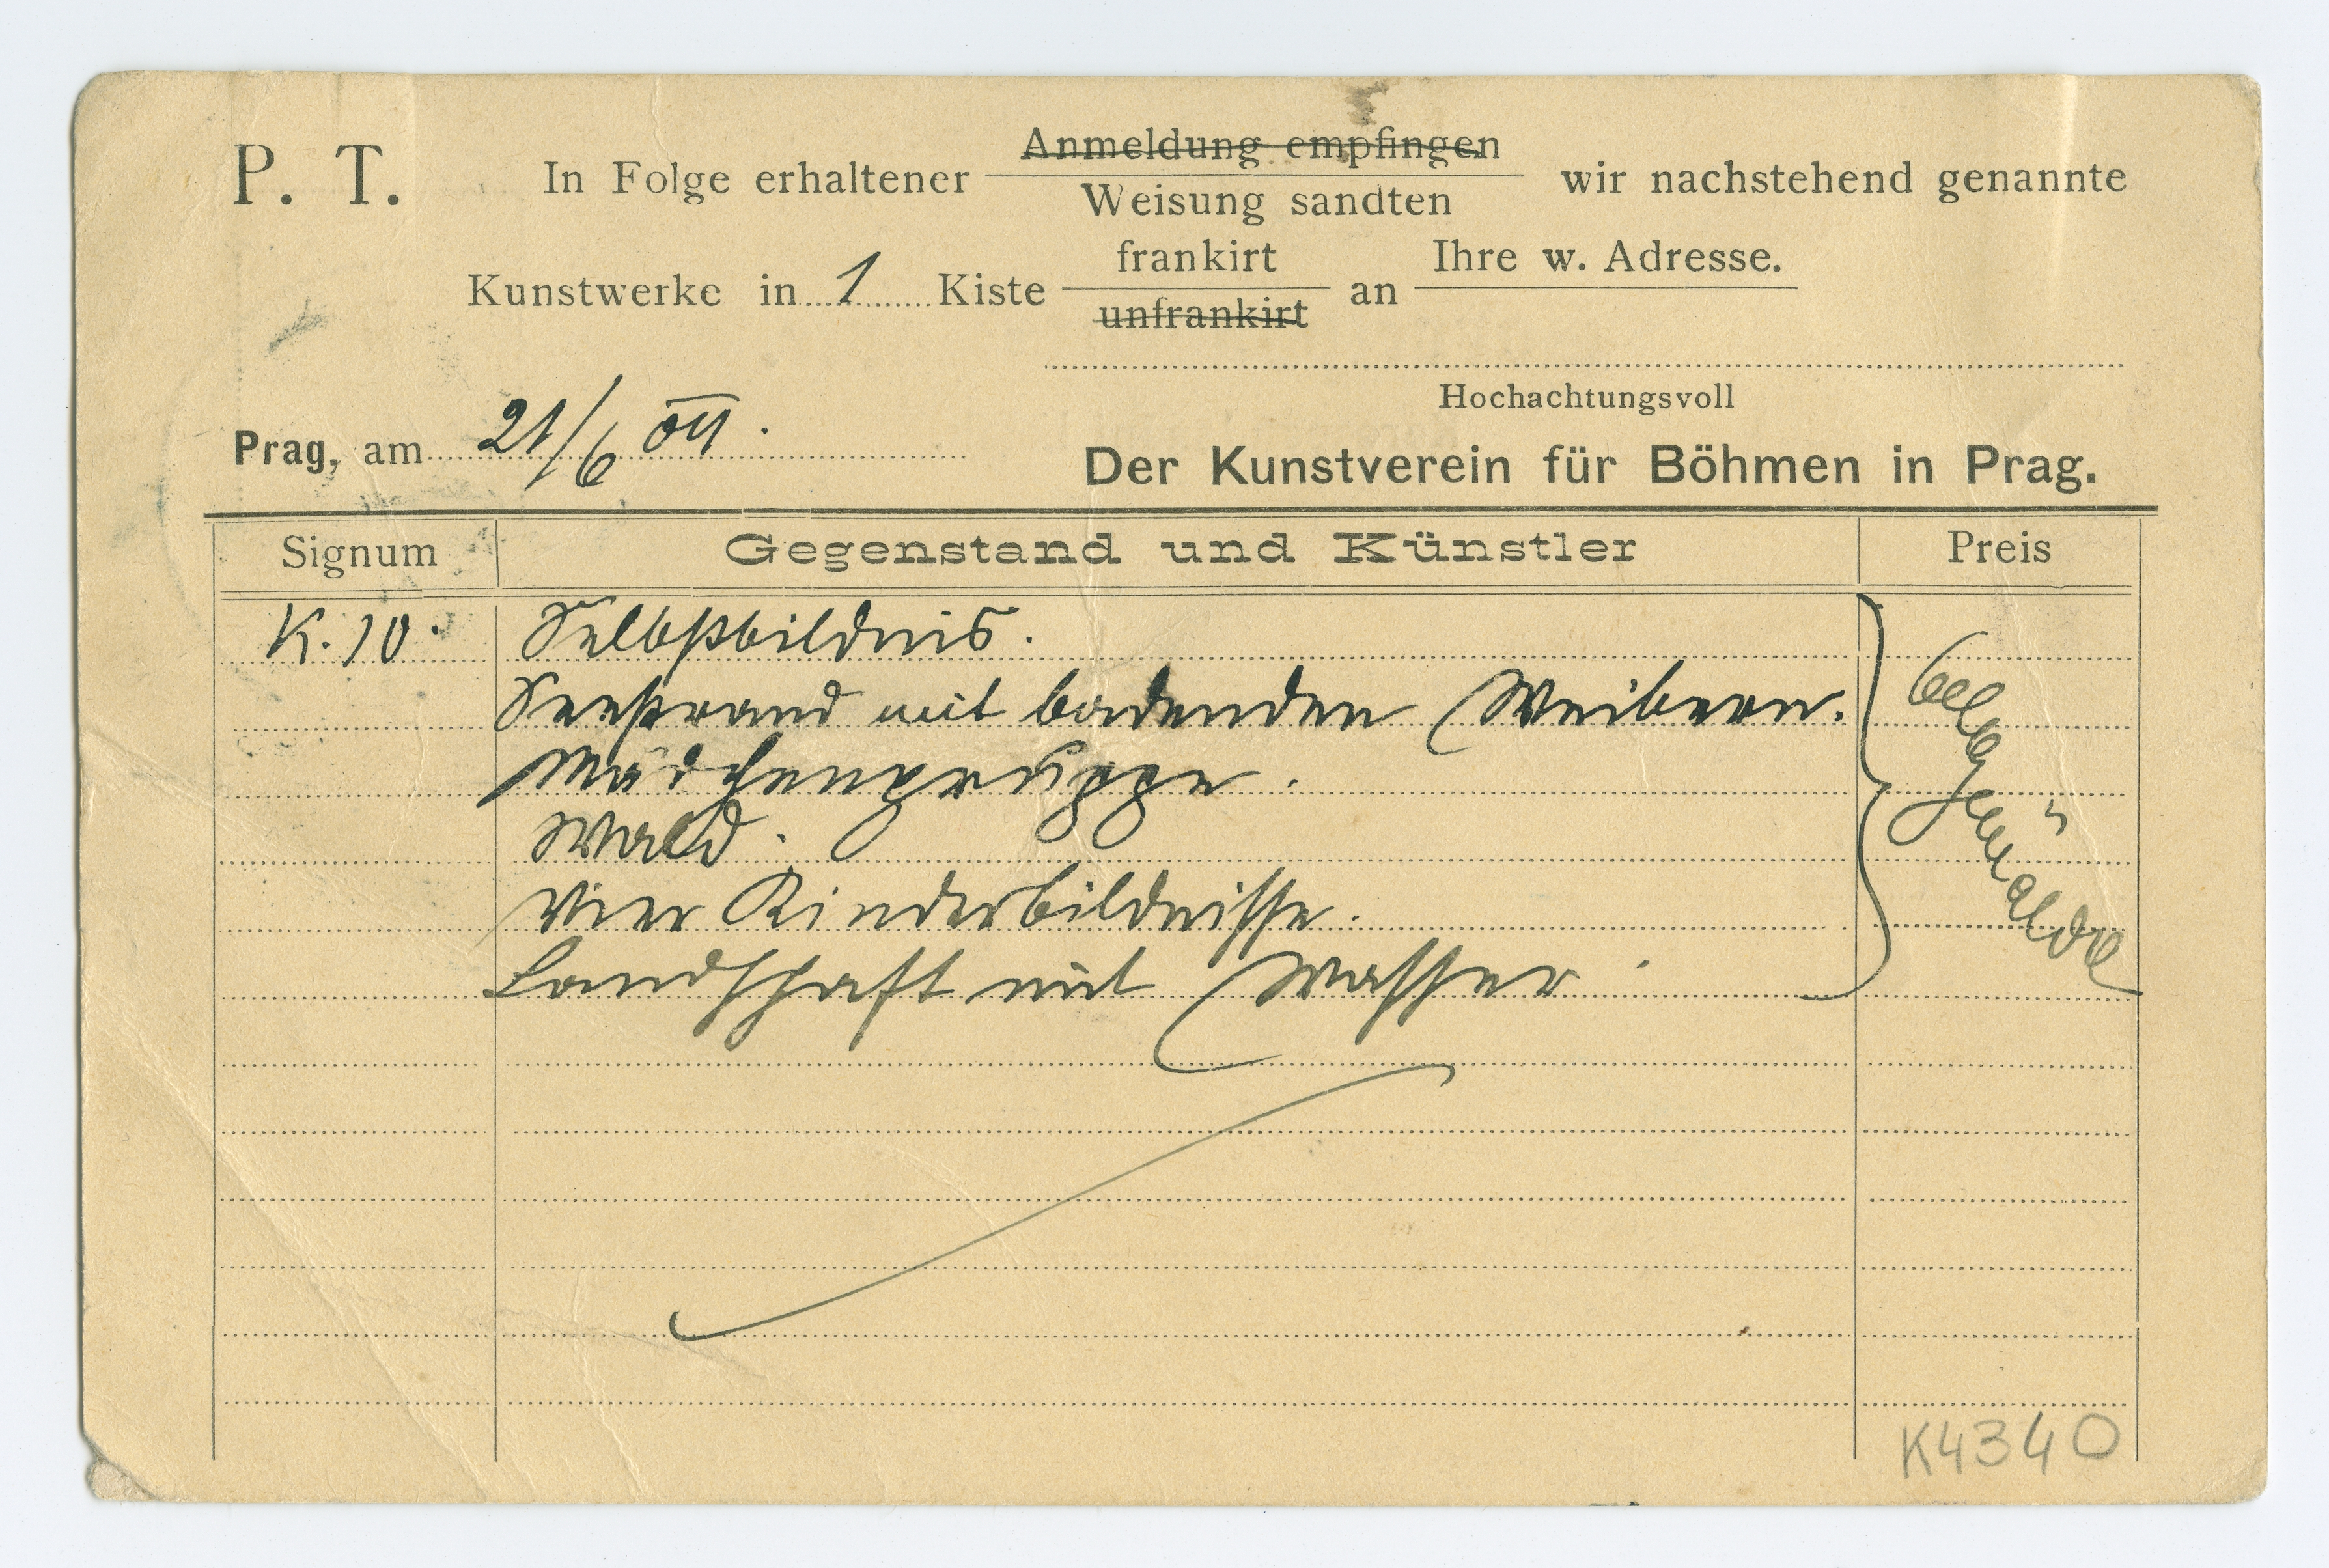 P. T. In Folge erhaltener Anmeldung empfingen wir nachstehend genannte
Weisung sandten
frankirt Ihre w. Adresse.
Kunstwerke in 1 Kiste an
unfrankirt
Hochachtungsvoll
Prag, am 21/6 04. Der Kunstverein für Böhmen in Prag.
Signum Gegenstand und Künstler Preis
K. 10. Selbstbildnis.
Seestrand mit badenden Weibern.
Mädchengruppe.
Wald.
Vier Kinderbildnisse.
Landschaft mit Wasser.
Gemälde
K4340